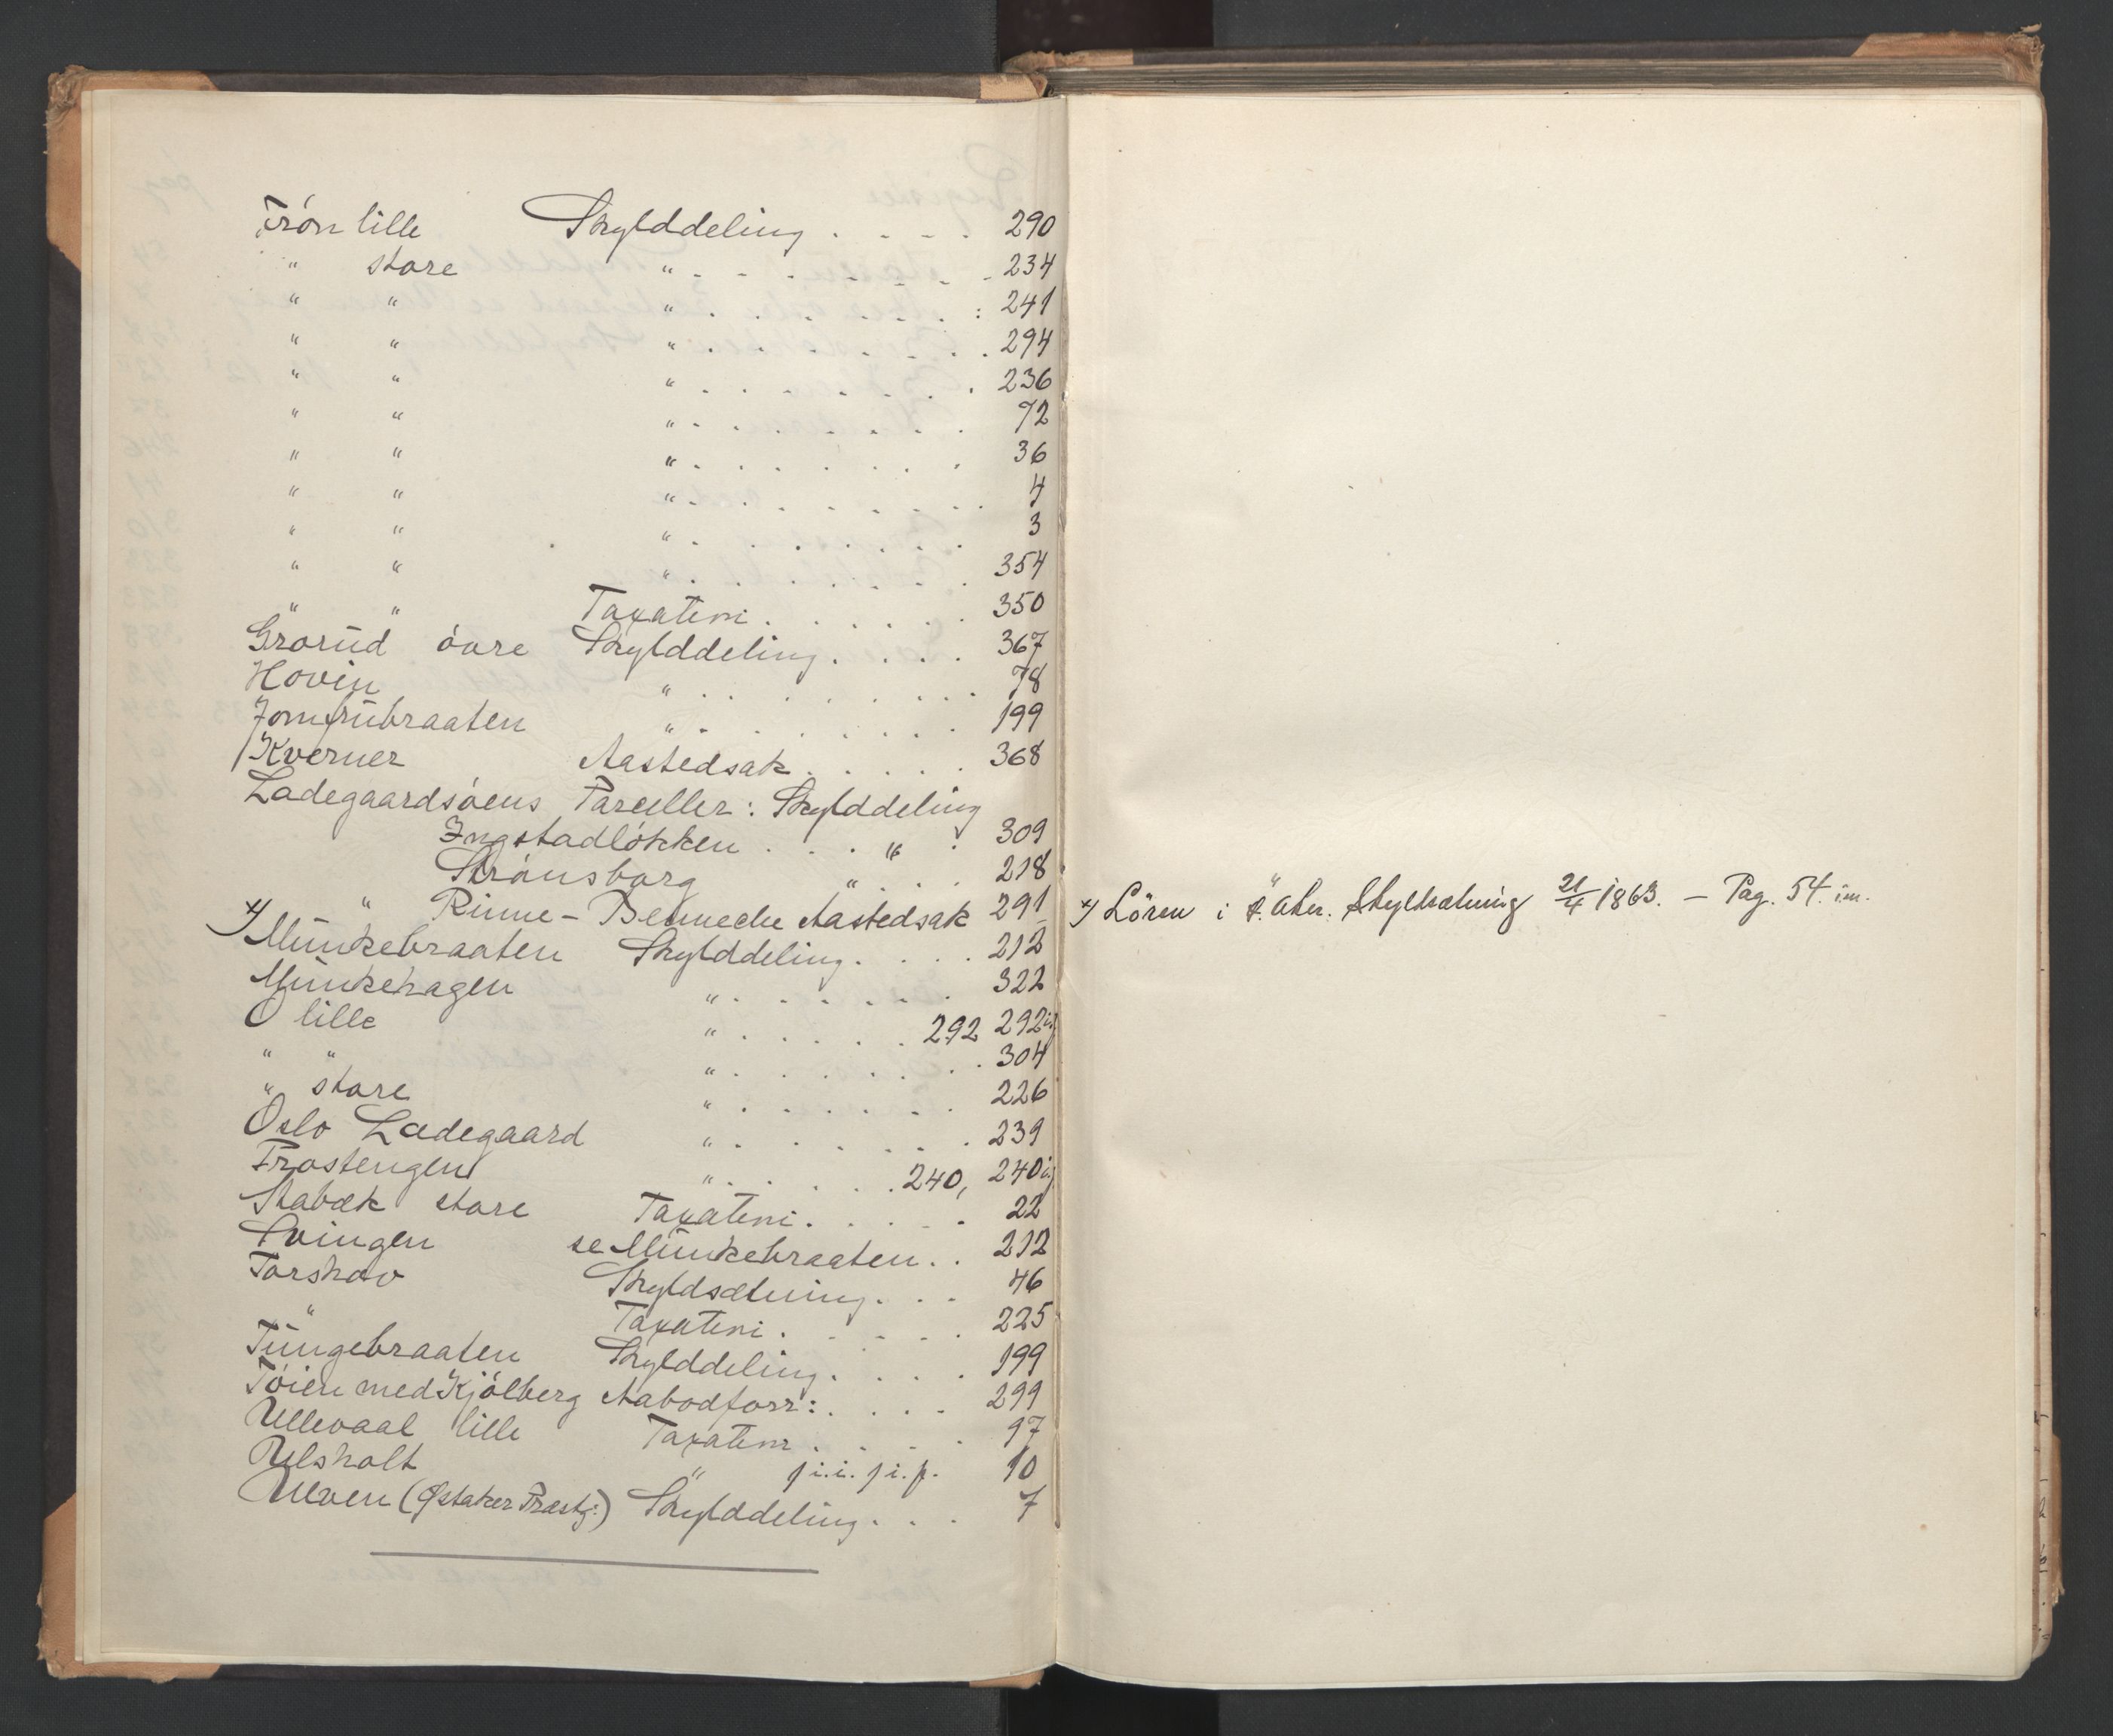 Frón lille Skylddeling . . . . 290
" store " . . . . . . . 234
" " " . . . . . . . 241
" " " . . . . . . . 294
" " " . . . . . . . 236
" " " . . . . . . . 72
" " " . . . . . . . 36
" " " . . . . . . . 4
" " " . . . . . . . 3
" " " . . . . . . . 354
" " Taxation . . . . . . 350
Grorud óvre Skylddeling . . . . 367
Hovin " . . . . . . . 78
Jomfrubraaten " . . . . . . . 199
Kverner Aastedsak . . . . . 368
Ladegaardsóens Parceller: Skylddeling
Ingstadlókken . . . " . 309
Strónsborg " . . . 218
" Rinne - Bennecke Aastedsak 291
x) Munkebraaten Skylddeling . . . . 212
Munkehagen " . . . . . . 322
Ó lille " . . . . . 292 292
" " " . . . . . . . 304
" store " . . . . . . 226
Oslo Ladegaard " . . . . . . 239
Prostengen " . . . . . 240, 240
Stabæk store Taxation . . . . . 22
Svingen se Munkebraaten . . 212
Torshov Skyldsætning . . . 46
" Taxation . . . . . 225
Tungebraaten Skylddeling . . . . 199
Tóien med Kjólberg Aabodforr: . . . . 299
Ullevaal lille Taxation . . . . 97
Ulsholt " 10
Ulven (Østaker Præstg:) Skylddeling . . . 7
x) Lören i Ö. Aker. Skyldsætning 21/4 1863. – Pag. 54.